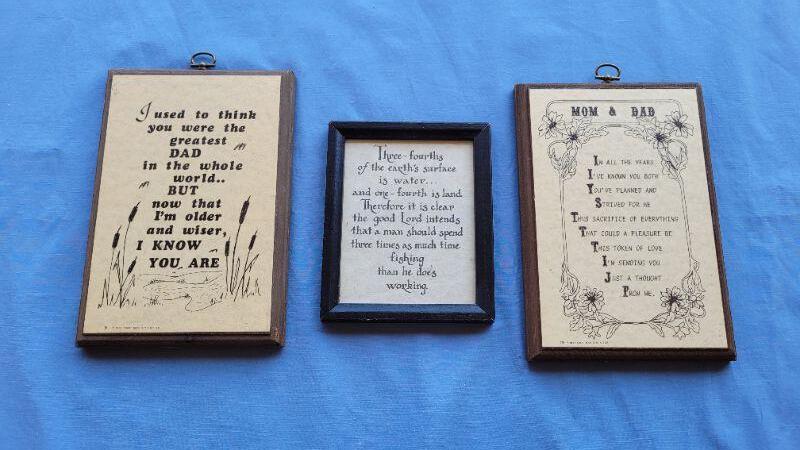 I used to think
you were the
greatest
DAD
in the whole
world..
BUT
now that
I'm older
and wiser,
I KNOW
YOU ARE
Three-fourths
of the earth's surface
is water...
and one-fourth is land.
Therefore it is clear
the good Lord intends
that a man should spend
three times as much time
fishing
than he does
working.
MOM & DAD
IN ALL THE YEARS
I'VE KNOWN YOU BOTH
YOU'VE PLANNED AND
STRIVED FOR ME
THIS SACRIFICE OF EVERYTHING
THAT COULD A PLEASURE BE
THIS TOKEN OF LOVE
I'M SENDING YOU
JUST A THOUGHT
FROM ME.